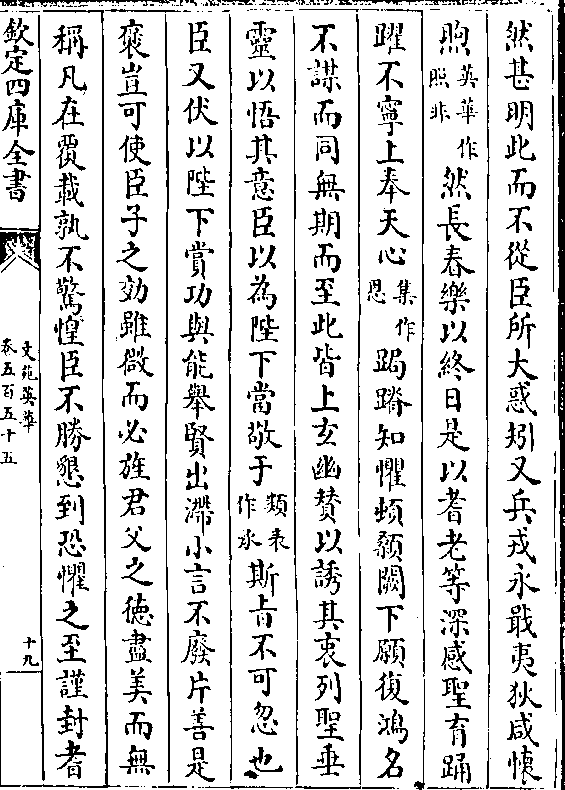 然甚明此而不從臣所大惑矧又兵戎永戢夷狄咸懐
煦英華作照非然長春樂以終日是以耆老等深感聖育踊
躍不寧上奉天心集作恩跼蹐知懼頓顙闕下願復鴻名
不謀而同無期而至此皆上玄幽賛以誘其衷列聖垂
靈以悟其意臣以為陛下當敬于類表作承斯㫖不可忽也
臣又伏以陛下賞功與能舉賢出滯小言不廢片善是
襃豈可使臣子之効雖微而必旌君父之徳盡美而無
稱凡在覆載孰不驚惶臣不勝懇到恐懼之至謹封耆
欽定四庫全書
文苑英華
卷五百五十五
十九